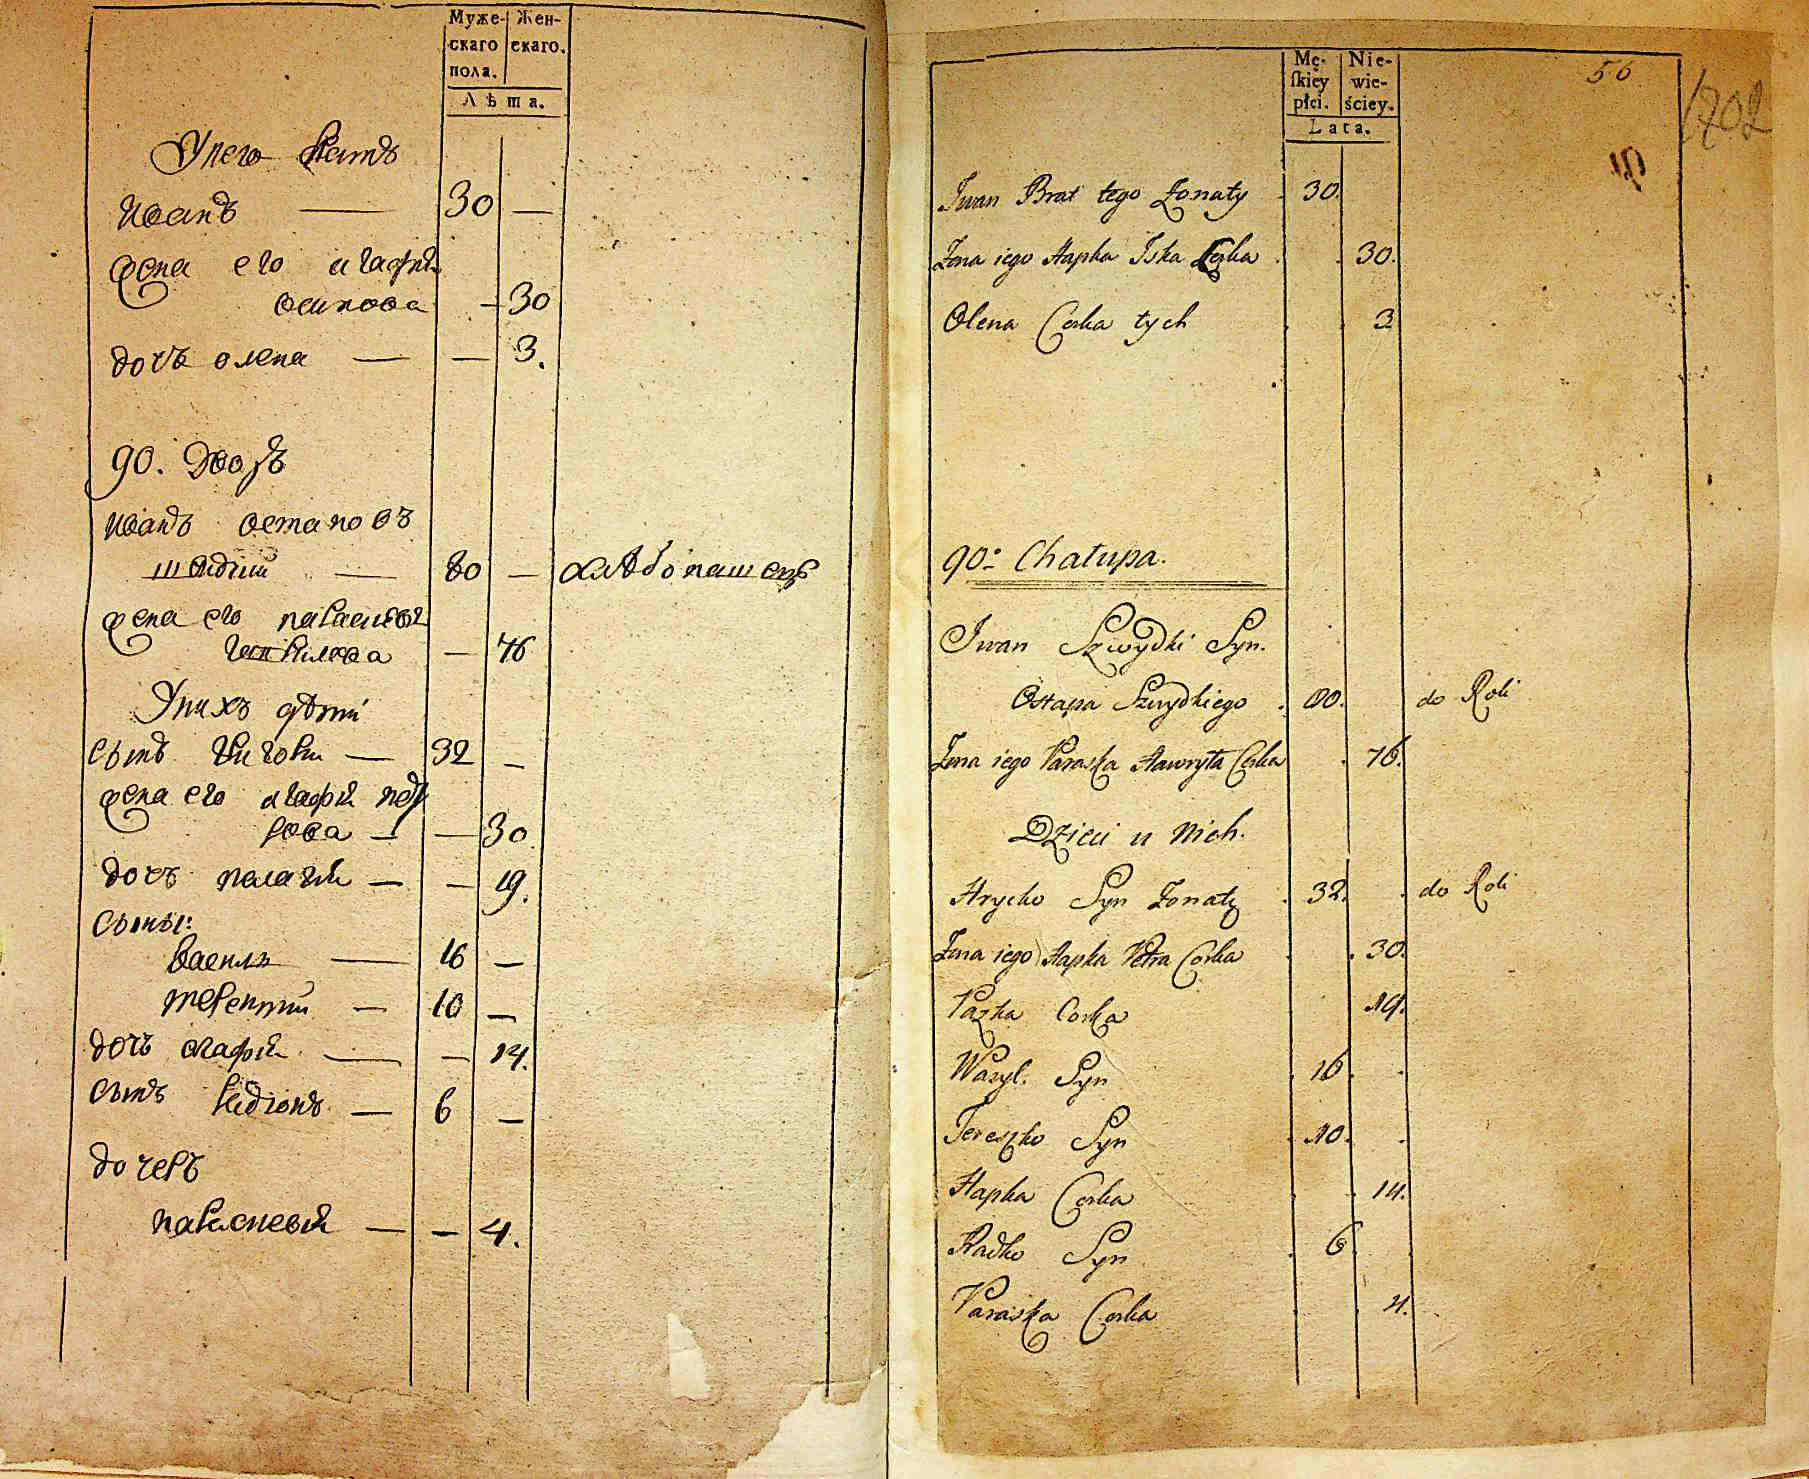 Муже- Жен-
скаго скаго.
пола.
Лѣта.
У него братъ
Иванъ — 30 —
жена его агафия
осипова — 30
дочь олена — — 3.
90. Дворъ
Иванъ остаповъ
швидкий — 80 — хлѣбопашецъ
жена его параскевия
гаврилова — 76
У нихъ дѣти
сынъ григори — 32 —
жена его агафия пет
рова — — 30
дочь пелагия — — 19.
сыны:
василь — 16 —
терентий — 10 —
дочь агафия — — 14.
сынъ радионъ — 6 —
дочерь
параскевия — — 4.
56
1702
Mę- Nie-
skiey wie-
płci. ściey.
Lata.
Iwan Brat tego Żonaty 30.
Żona iego Hapka Córka 30.
Olena Corka tych 3
90. Chałupa.
Iwan Szwydki Syn.
Ostapa Szwydkiego 80. do Roli
Żona iego Paraska Hawryła Corka 76.
Dzieci u Nich.
Hrycko Syn Żonaty 32. do Roli
Żona iego Hapka Petra Corka 30.
Pazka Corka 19.
Wasyl. Syn 16
Tereszko Syn 10.
Hapka Corka 14.
Radko Syn 6
Paraska Corka 4.